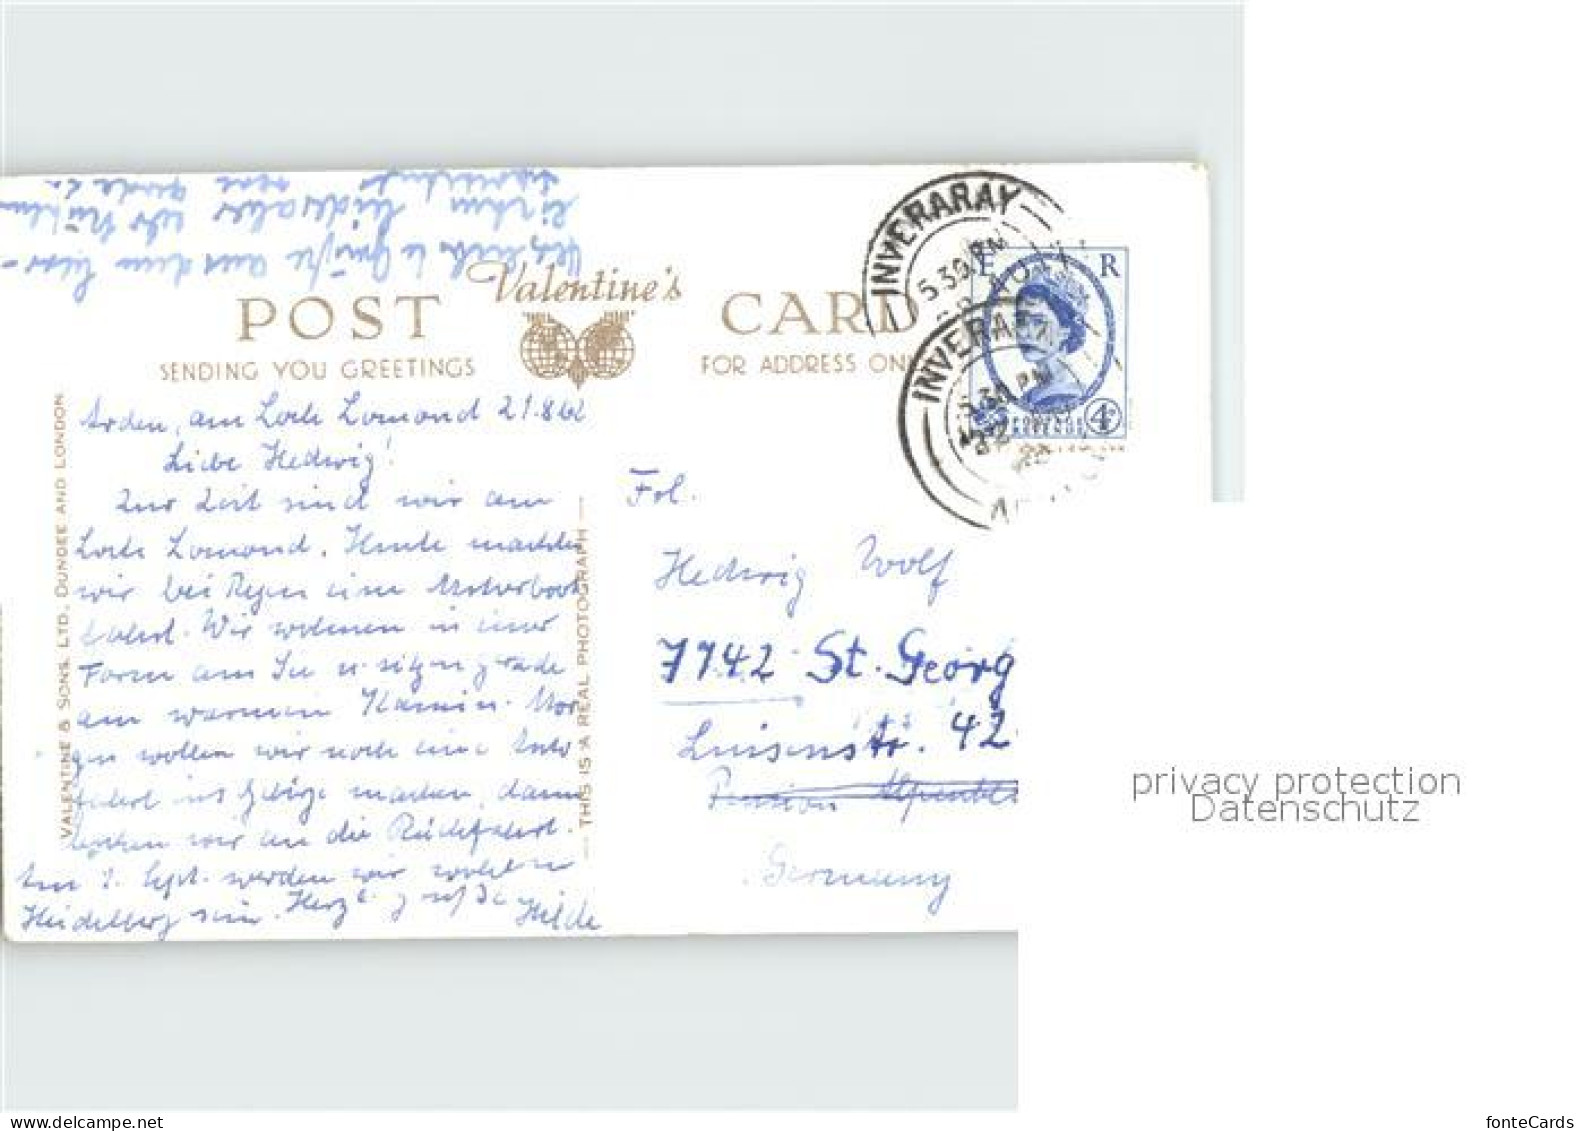 Valentine's
POST CARD
SENDING YOU GREETINGS
FOR ADDRESS ON
INVERARAY
5.30 PM
E R
INVERARAY
5.30 PM
4D
VALENTINE & SONS, LTD, DUNDEE AND LONDON
THIS IS A REAL PHOTOGRAPH
Herzliche Grüße aus dem
Arden, am Loch Lomond 21.8.62
Liebe Hedwig!
Zur Zeit sind wir am
Loch Lomond. Heute machten
wir bei Regen eine Motorboot
fahrt. Wir wohnen in einer
Farm am See u. sitzen gerade
am warmen Kamin. Mor
gen wollen wir noch eine Auto
fahrt ins Gebirge machen, dann
wir an die Rückfahrt.
Am 1. Sept. werden wir wohl in
Heidelberg sein. Herzl. grüßt
Hilde
Frl.
Hedwig Wolf
7742 St. Georg
Luisenstr. 42
Pension
Germany
privacy protection
Datenschutz
fonteCards